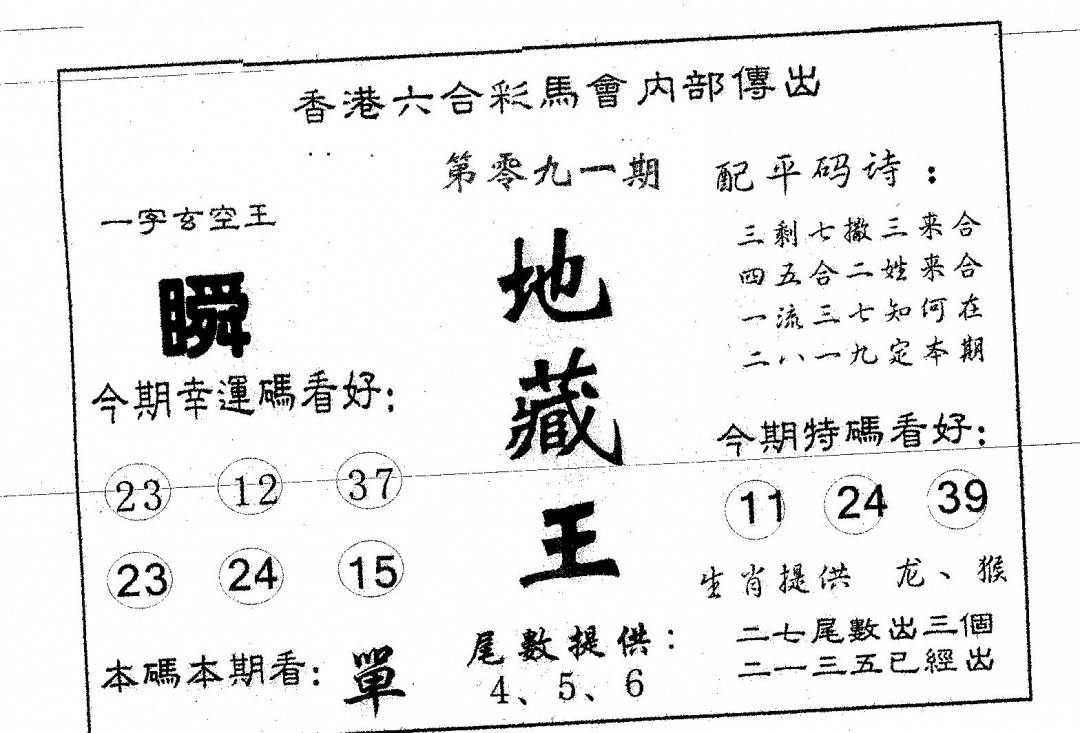 香港六合彩馬會内部傳出
第零九一期
一字玄空王
瞬
今期幸運碼看好：
23 12 37
23 24 15
本碼本期看：單
地
藏
王
尾數提供：
4、5、6
配平码诗：
三剩七撒三来合
四五合二姓来合
一流三七知何在
二八一九定本期
今期特碼看好：
11 24 39
生肖提供 龙、猴
二七尾數出三個
二一三五已經出